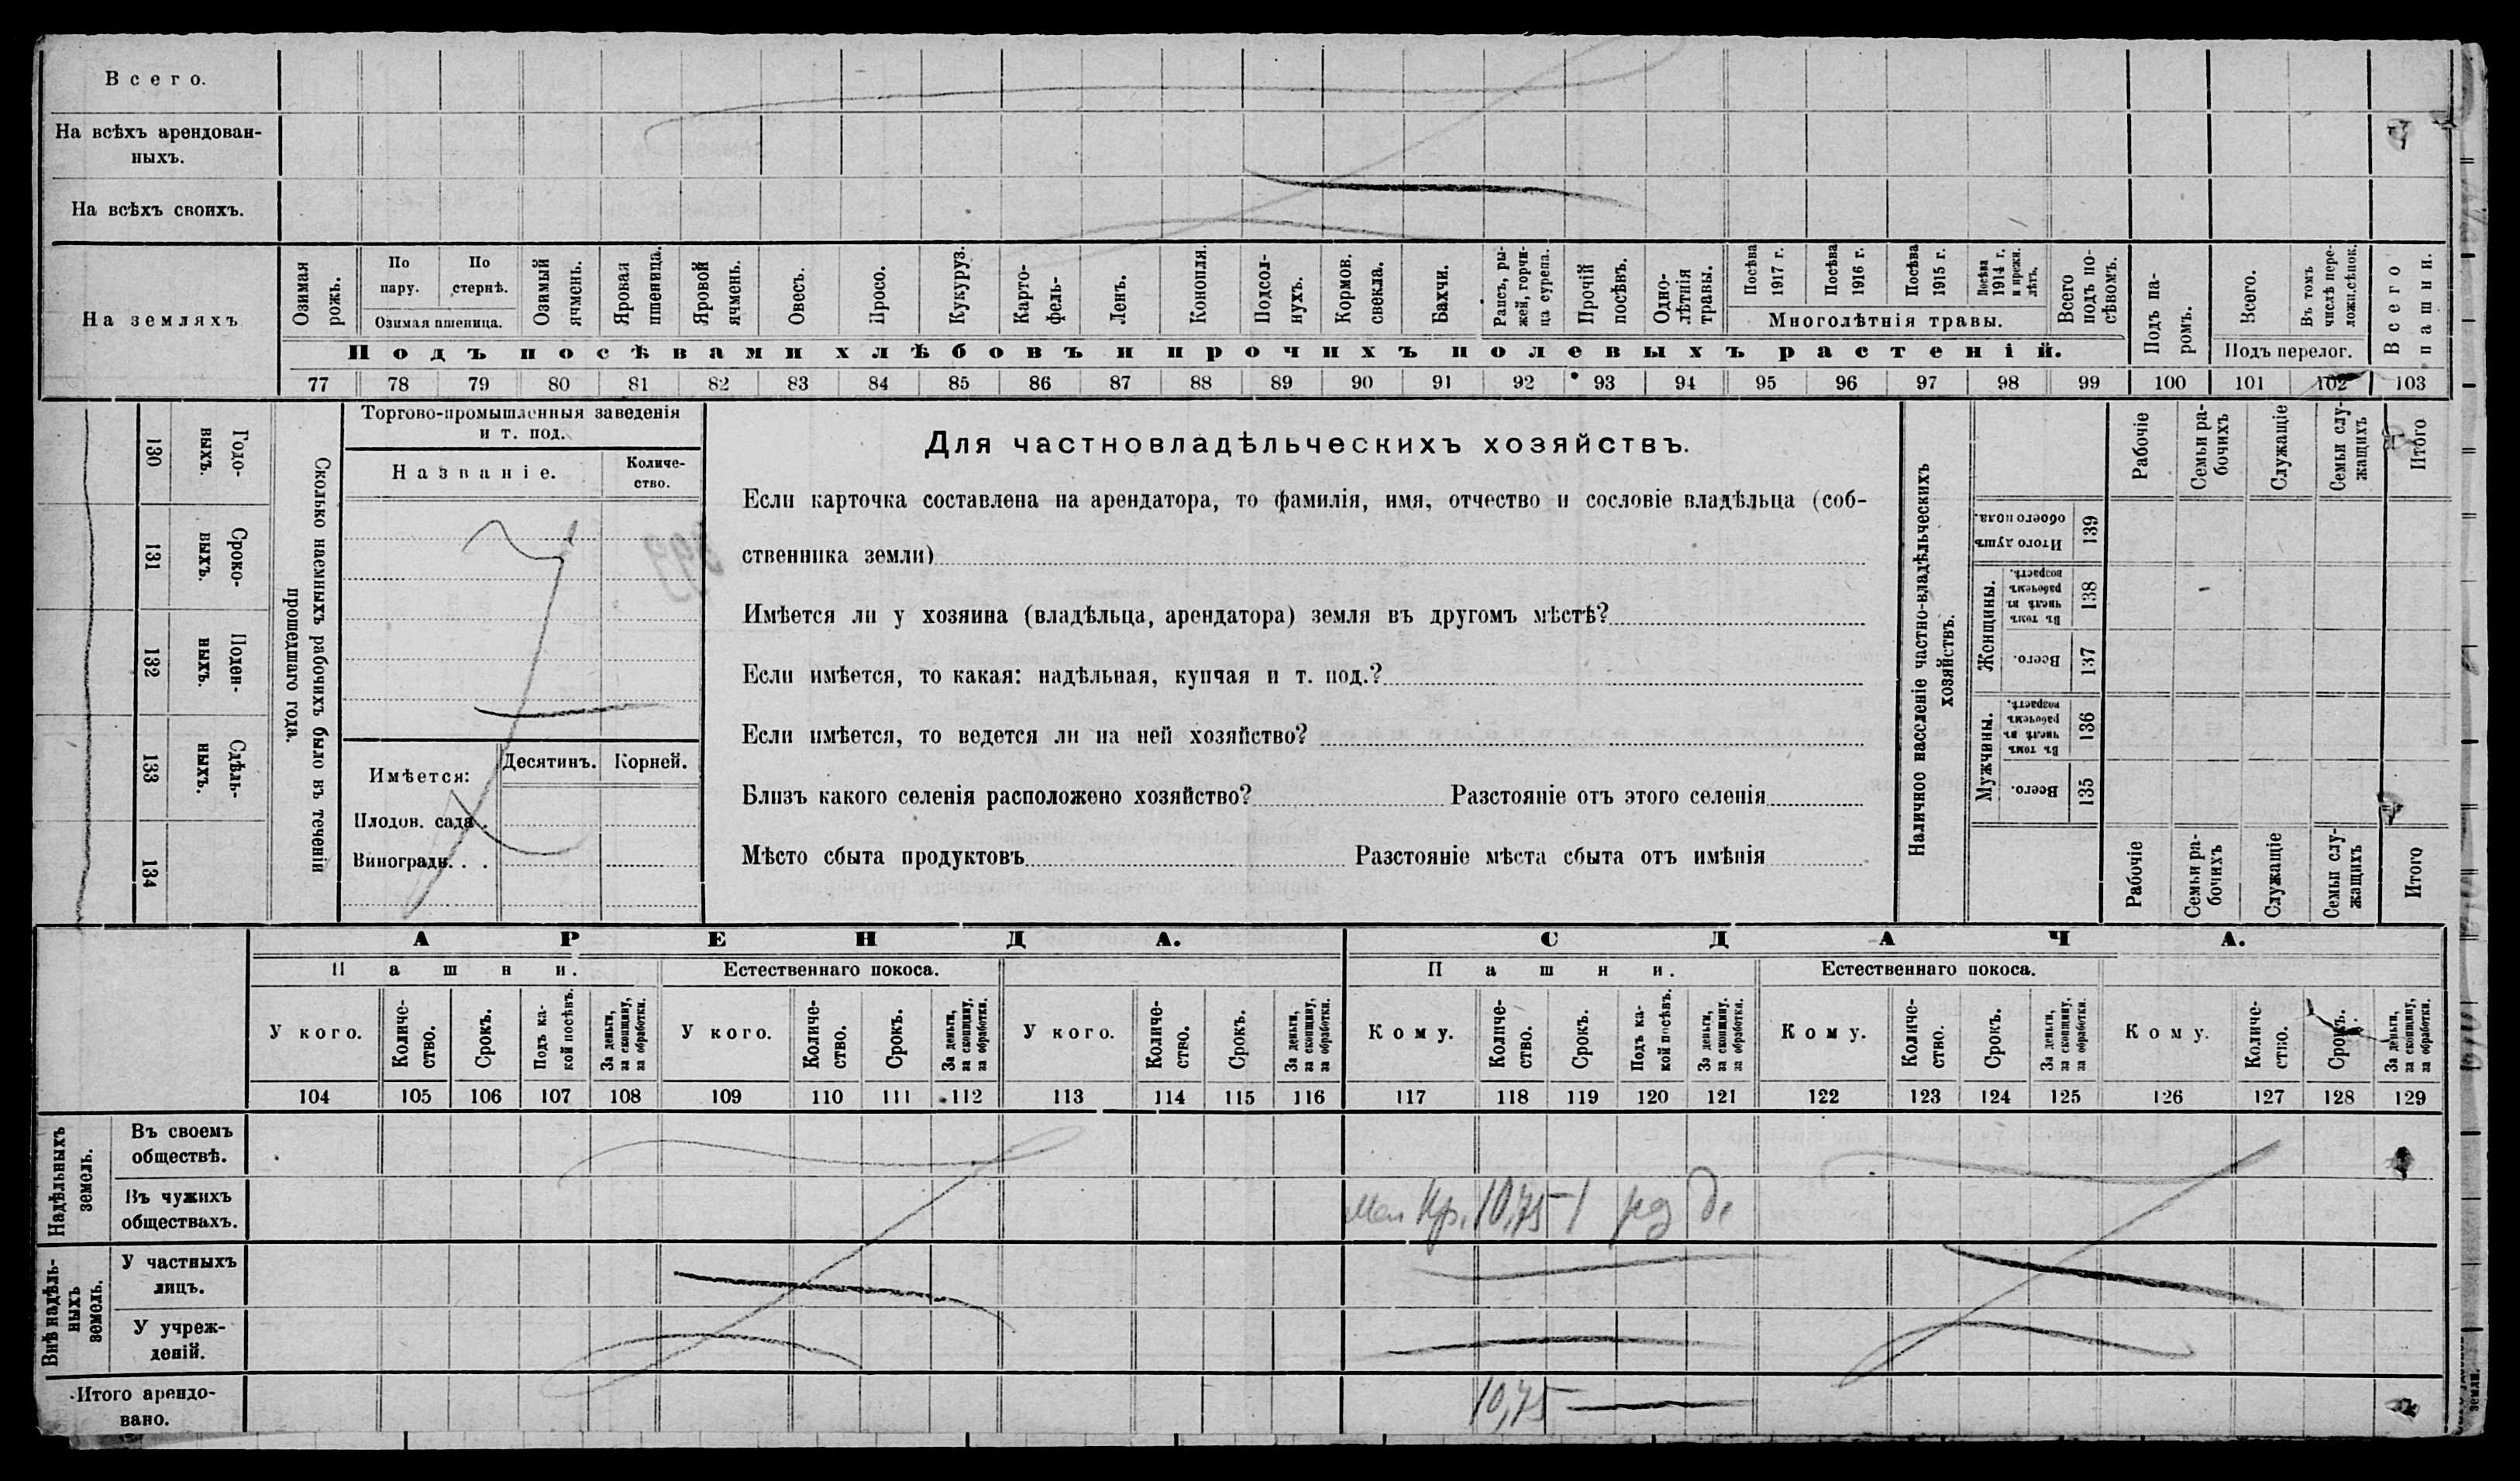 Всего.
На всѣхъ арендован-
ныхъ.
На всѣхъ своихъ.
На земляхъ
Озимая рожь.
По пару.
По стернѣ.
Озимая пшеница.
Озимый ячмень.
Яровая пшеница.
Яровой ячмень.
Овесъ.
Просо.
Кукуруз.
Карто-
фель-
Ленъ.
Конопля.
Подсол-
нухъ.
Кормов. свекла.
Бахчи.
Рапсъ, ры-
жей, горчи-
ца сурепа.
Прочій посѣвъ.
Одно-
лѣтнія травы.
Посѣва 1917 г.
Посѣва 1916 г.
Посѣва 1915 г.
Посѣва 1914 г. и прежн. лѣтъ.
Многолѣтнія травы.
Всего подъ по-
сѣвомъ.
Подъ па-
ромъ.
Всего.
Въ томъ числѣ пере-
ложн.сѣнок.
Подъ перелог.
Всего пашни.
Подъ посѣвами хлѣбовъ и прочихъ полевыхъ растеній.
77 78 79 80 81 82 83 84 85 86 87 88 89 90 91 92 93 94 95 96 97 98 99 100 101 102 103
130 Годо-
выхъ.
131 Сроко-
выхъ.
132 Поден-
ныхъ.
133 Сдѣль-
ныхъ.
134
Сколько наемныхъ рабочихъ было въ теченіи
прошедшаго года.
Торгово-промышленныя заведенія
и т. под.
Названіе.
Количе-
ство.
Имѣется:
Десятинъ. Корней.
Плодов. сада .
Виноградн. . .
Для частновладѣльческихъ хозяйствъ.
Если карточка составлена на арендатора, то фамилія, имя, отчество и сословіе владѣльца (соб-
ственника земли)
Имѣется ли у хозяина (владѣльца, арендатора) земля въ другомъ мѣстѣ?
Если имѣется, то какая: надѣльная, купчая и т. под.?
Если имѣется, то ведется ли на ней хозяйство?
Близъ какого селенія расположено хозяйство? Разстояніе отъ этого селенія
Мѣсто сбыта продуктовъ Разстояніе мѣста сбыта отъ имѣнія
Наличное населеніе частно-владѣльческихъ
хозяйствъ.
Рабочіе
Семьи ра-
бочихъ
Служащіе
Семьи слу-
жащихъ
Итого
Итого душъ обоего пола. 139
Женщины.
Въ томъ числѣ въ рабочемъ возрастѣ. 138
Всего. 137
Мужчины.
Въ томъ числѣ въ рабочемъ возрастѣ. 136
Всего. 135
Рабочіе
Семьи ра-
бочихъ
Служащіе
Семьи слу-
жащихъ
Итого
АРЕНДА. СДАЧА.
Пашни. Естественнаго покоса. Пашни. Естественнаго покоса.
У кого.
Количе-
ство.
Срокъ.
Подъ ка-
кой посѣвъ.
За деньги, за скопщину, за обработки.
У кого.
Количе-
ство.
Срокъ.
За деньги, за скопщину, за обработки.
У кого.
Количе-
ство.
Срокъ.
За деньги, за скопщину, за обработки.
Кому.
Количе-
ство.
Срокъ.
Подъ ка-
кой посѣвъ.
За деньги, за скопщину, за обработки.
Кому.
Количе-
ство.
Срокъ.
За деньги, за скопщину, за обработки.
Кому.
Количе-
ство.
Срокъ.
За деньги, за скопщину, за обработки.
104 105 106 107 108 109 110 111 112 113 114 115 116 117 118 119 120 121 122 123 124 125 126 127 128 129
Надѣльныхъ
земель.
Въ своемъ
обществѣ.
Въ чужихъ
обществахъ.
Кр. 10,75 1
Внѣ надѣль-
ныхъ
земель.
У частныхъ
лицъ.
У учреж-
деній.
Итого арендо-
вано.
10,75